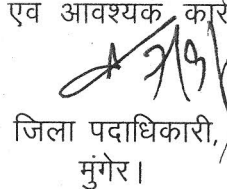 एव आवश्यक
जिला पदाधिकारी,
मुंगेर।